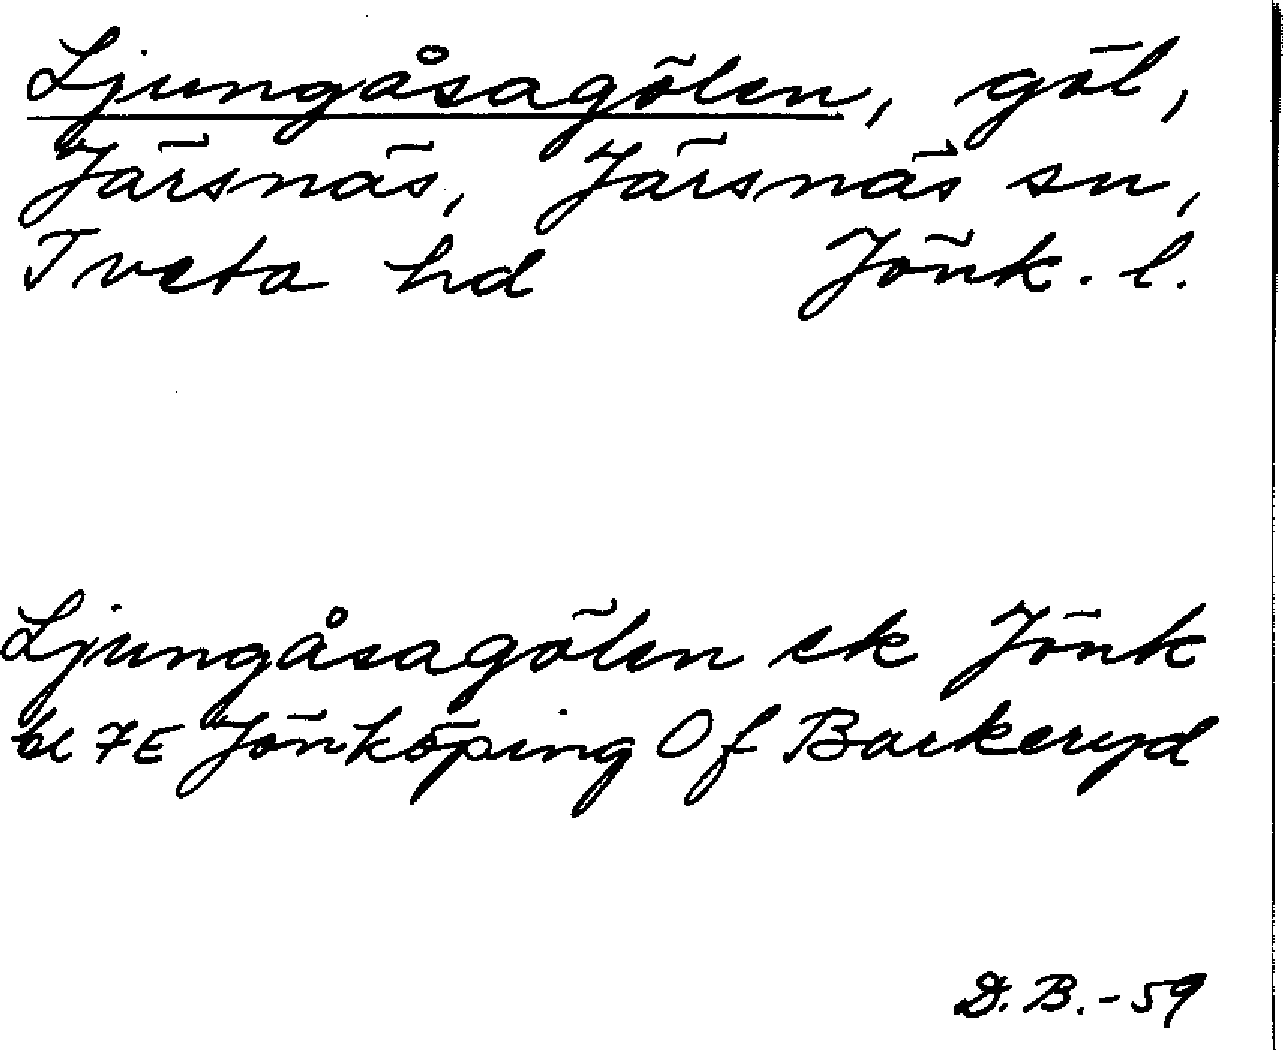 Ljungåsagölen, göl,
Järsnäs, Järsnäs sn,
Tveta hd Jönk. l.
Ljungåsagölen ek Jönk
bl 7E Jönköping Of Barkeryd
D.B.-59